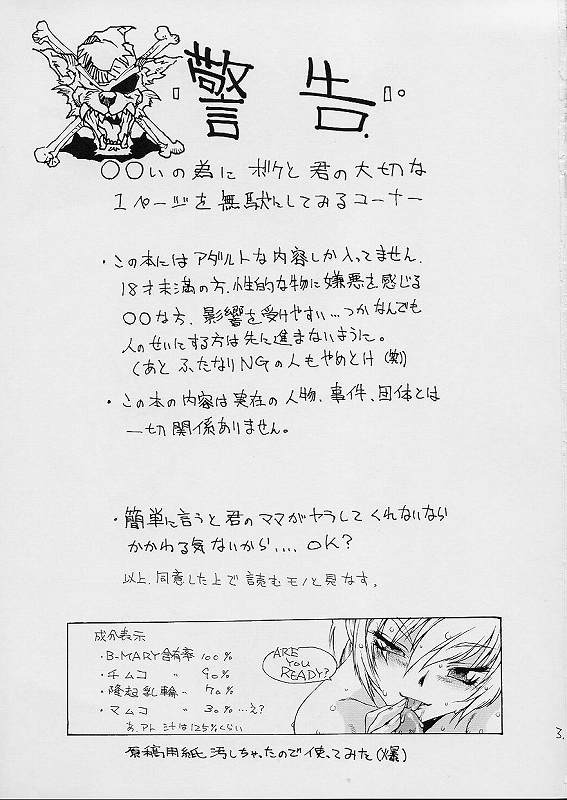 警告.
○○いの為にボケと君の大切な
1ページを無駄にしてみるコーナー
・この本にはアダルトな内容しか入ってません.
18才未満の方.性的な物に嫌悪を感じる
○○な方.影響を受けやすい…つかなんでも
人のせいにする方は先に進まないように。
(あと ふたなりNGの人もやめとけ(笑)
・この本の内容は実在の人物、事件、団体とは
一切関係ありません。
・簡単に言うと君のママがヤラしてくれないなら
かかわる気ないから.... OK?
以上.同意した上で読むモノと見なす。
成分表示
・B-MARY含有率 100%
・チムコ 〃 90%
・隆起乳輪 〃 70%
・マムコ 〃 30%…え?
あ.アト 汁は125%くらい
ARE
YOU
READY?
原稿用紙汚しちゃったので使ってみた(爆)
3.